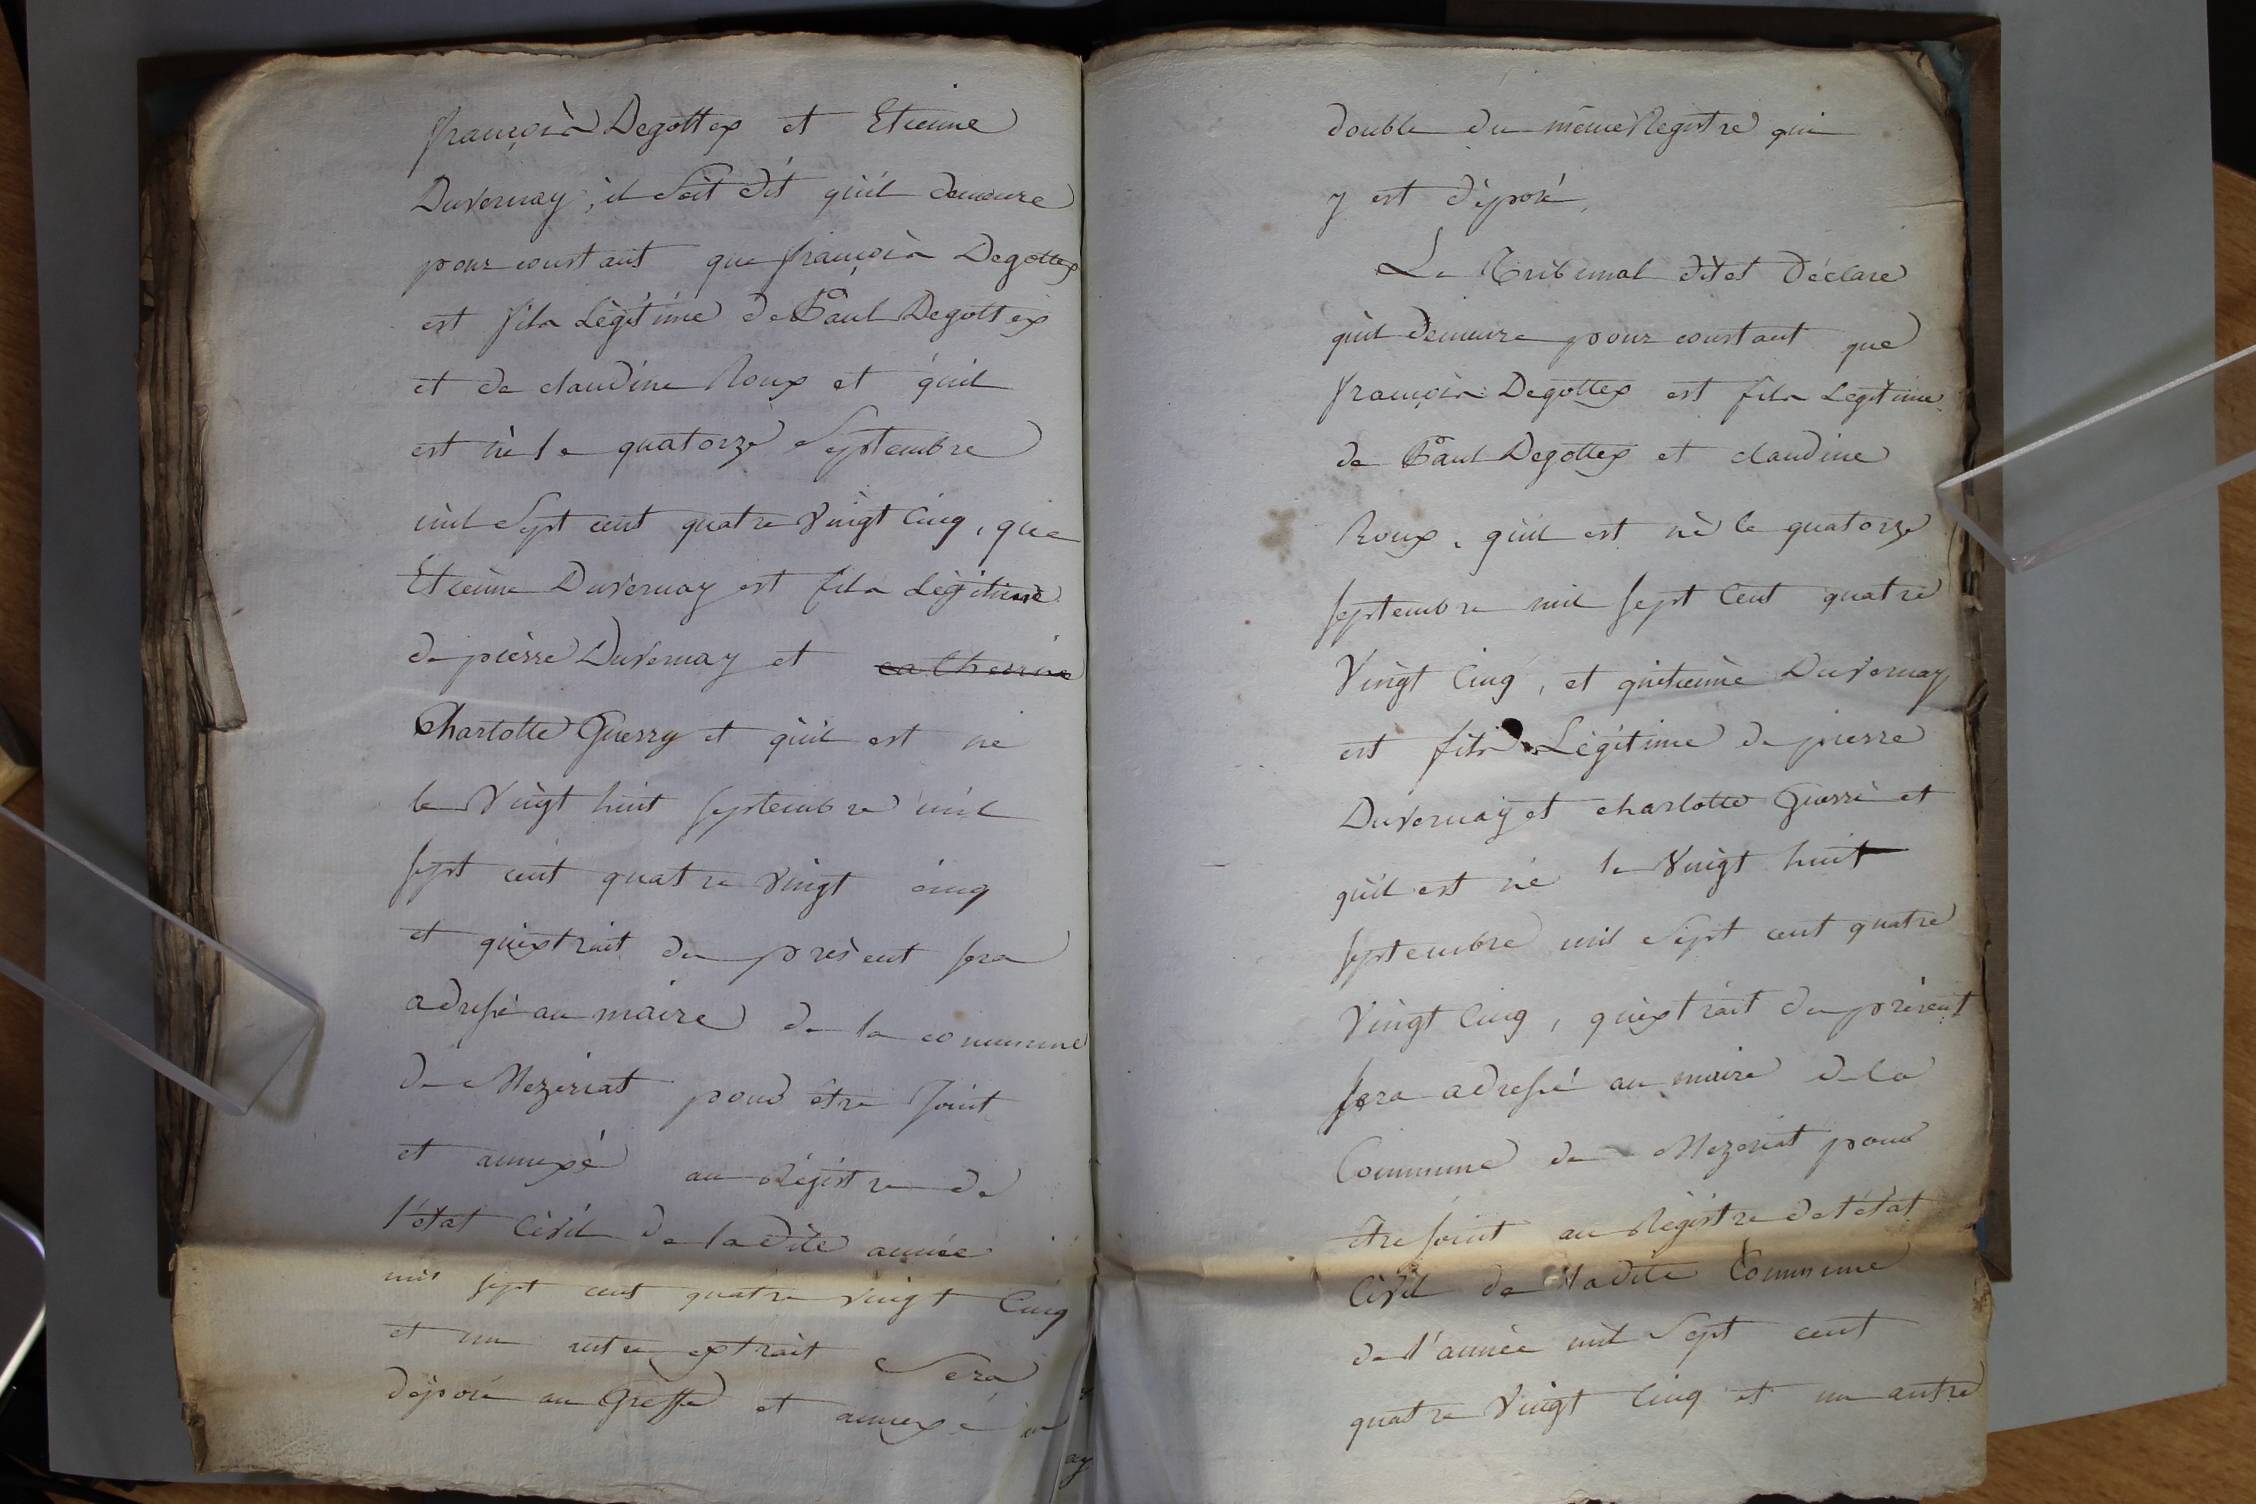 françois Degottex et Etienne
Duvernay, il soit dit qu'il demeure
pour constant que françois Degottex
est fils Légitime de Paul Degottex
et de claudine Roux et qu'il
est nè le quatorze Septembre
mil Sept cent quatre Vingt Cinq, que
Etienne Duvernay est fils Légitime
de pierre Duvernay et catherine
Charlotte Guerry et qu'il est né
le Vingt huit septembre mil
sept cent quatre Vingt cinq
et qu'extrait du présent sera
adressé au maire de la commune
de Mezeriat pour être Joint
et annexé au Régistre de
l'état Civil de la dite année
mil sept cent quatre vingt Cinq
et un autre extrait Sera
déposé au Greffe et annexé au
double du même Registre qui
y est déposé,
Le Tribunal dit et Déclare
qu'il demeure pour constant que
françois Degottex est fils Légitime
de Paul Degottex et claudine
Roux, qu'il est né le quatorze
septembre mil sept Cent quatre
Vingt Cinq, et qu'etienne Duvernay
est fils Légitime de pierre
Duvernay et charlotte Guerré et
qu'il est né le Vingt huit
septembre mil Sept cent quatre
Vingt Cinq, qu'extrait du présent
sera adressé au maire de la
Commune de Mezeriat pour
être Joint au Régistre de l'état
Civil de la dite Commune
de l'année mil Sept cent
quatre Vingt Cinq et un autre